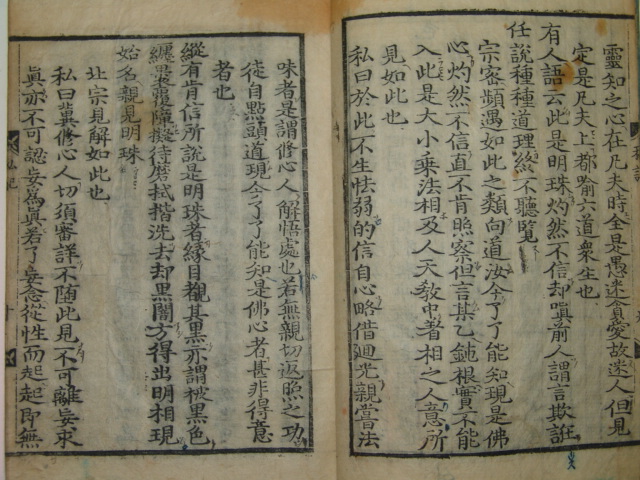 靈知之心在凡夫時全是愚迷貪愛故迷人但見
定是凡夫上都喻六道衆生也
有人語云此是明珠灼然不信却嗔前人謂言欺誑
任說種種道理終不聽覽
宗密頻遇如此之類向道汝今了了能知現是佛
心灼然不信直不肯照察但言某乙鈍根實不能
入此是大小乘法相及人天敎中著相之人意所
見如此也
私曰於此不生怯弱的信自心略借廻光親嘗法
味者是謂修心人解悟處也若無親切返照之功
徒自點頭道現今了了能知是佛心者甚非得意
者也
縱有肯信所說是明珠者緣目覩其黑亦謂被黑色
纏裹覆障擬待磨拭揩洗去却黑闇方得出明相現
始名親見明珠
北宗見解如此也
私曰冀修心人切須審詳不随此見不可離妄求
眞亦不可認妄爲眞若了妄念從性而起起即無